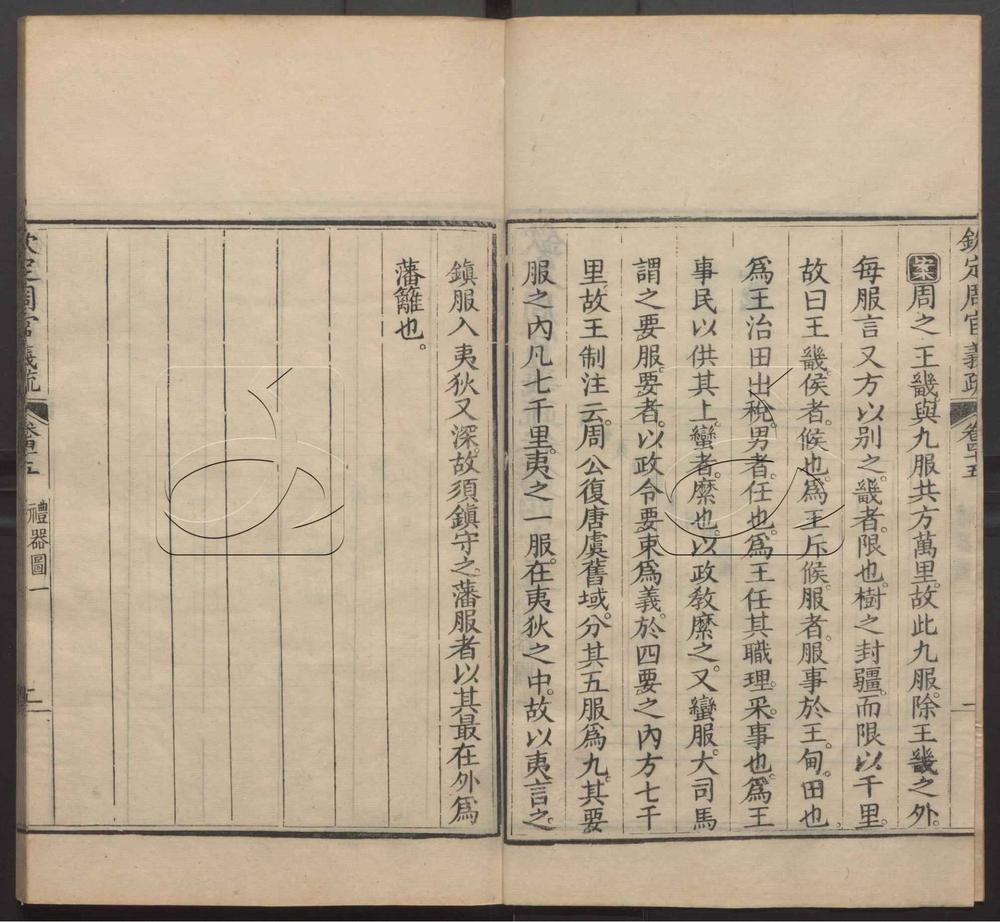 欽定周官義疏 卷四十五 一
案周之王畿與九服共方萬里。故此九服。除王畿之外。
每服言又方以別之。畿者。限也。樹之封疆。而限以千里。
故曰王畿。侯者。候也。爲王斥候。服者。服事於王。甸。田也。
爲王治田出稅。男者。任也。爲王任其職理。采。事也。爲王
事民以供其上。蠻者。縻也。以政敎縻之。又蠻服。大司馬
謂之要服。要者。以政令要束爲義。於四要之內方七千
里。故王制注云。周公復唐虞舊域。分其五服爲九。其要
服之內凡七千里。夷之一服。在夷狄之中。故以夷言之。
鎮服入夷狄又深。故須鎮守之。藩服者以其最在外爲
藩籬也。
欽定周官義疏 卷四十五 禮器圖一 二